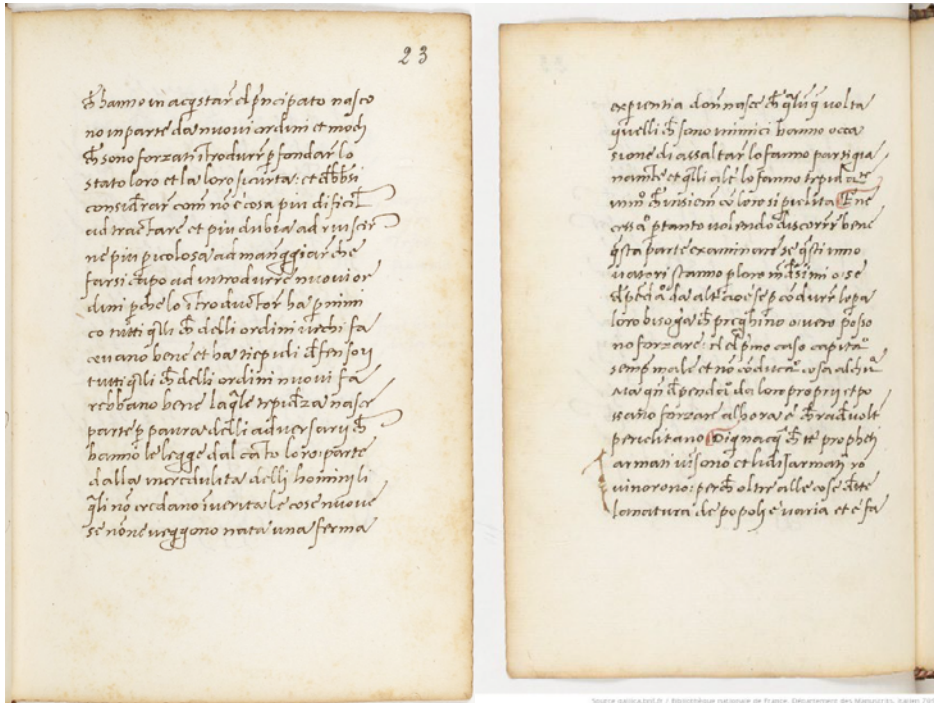 23
ch̄ hanno in acq̄star̄ el p̄ncipato nasco
no inparte da nuovi ordini et modj
ch̄ sono forzati ītrodurr̄ p̄ fondar̄ lo
stato loro et la loro sicurta: et
considrar̄ com nō e cosa piu dificil
ad tractare et piu dubia ad riuscir
ne piu p̄icolosa ad maneggiar che
farsi capo ad introdurre nuovi or
dini p̄che lo ītroductor̄ ha p̄ nimi
co tutti q̄lli ch̄ delli ordini vechi fa
cevano bene et ha tiepidi difensori
tutti q̄lli ch̄ delli ordini nuovi fa
rebbano bene laq̄le tepidza nasce
parte p̄ paura delli adversarij ch̄
hanno le legge dal cāto loro: parte
dalla incredulita delli hominj li
q̄li nō credano ī verita le cose nuove
se nōne veggono nata una ferma
experientia donde nasce ch̄ q̄luq̄ volta
quelli ch̄ sono inimici hanno occa
sione di assaltar̄ lo fanno partigia
namēte et q̄lli altr̄ lo fanno
ch̄ insiem cō loro si piclita E ne
p̄tanto volendo discorrer̄ bene
q̄sta parte examinare se q̄sti inno
vatori stanno p̄ loro medesimi o se
da altr̄ cioe se p̄ cōdurr̄ lopa
loro bisog̃a ch̄ preghino overo posso
no forzare: nel p̄mo caso capitā
semp̄ male et nō cōducā cosa alchūa
Ma qn̄ dependā da loro proprij et po
ssano forzare alhora e ch̄ rade volt
periclitano Di qui nacq̄ ch̄ tt̄ prophetj
armati vīsono et li disarmati ro
vinorono: perch̄ oltr̄ alle cose dcte
la natura de popolj e varia et e fa
Source gallica.bnf.fr / Bibliothèque nationale de France. Département des Manuscrits.